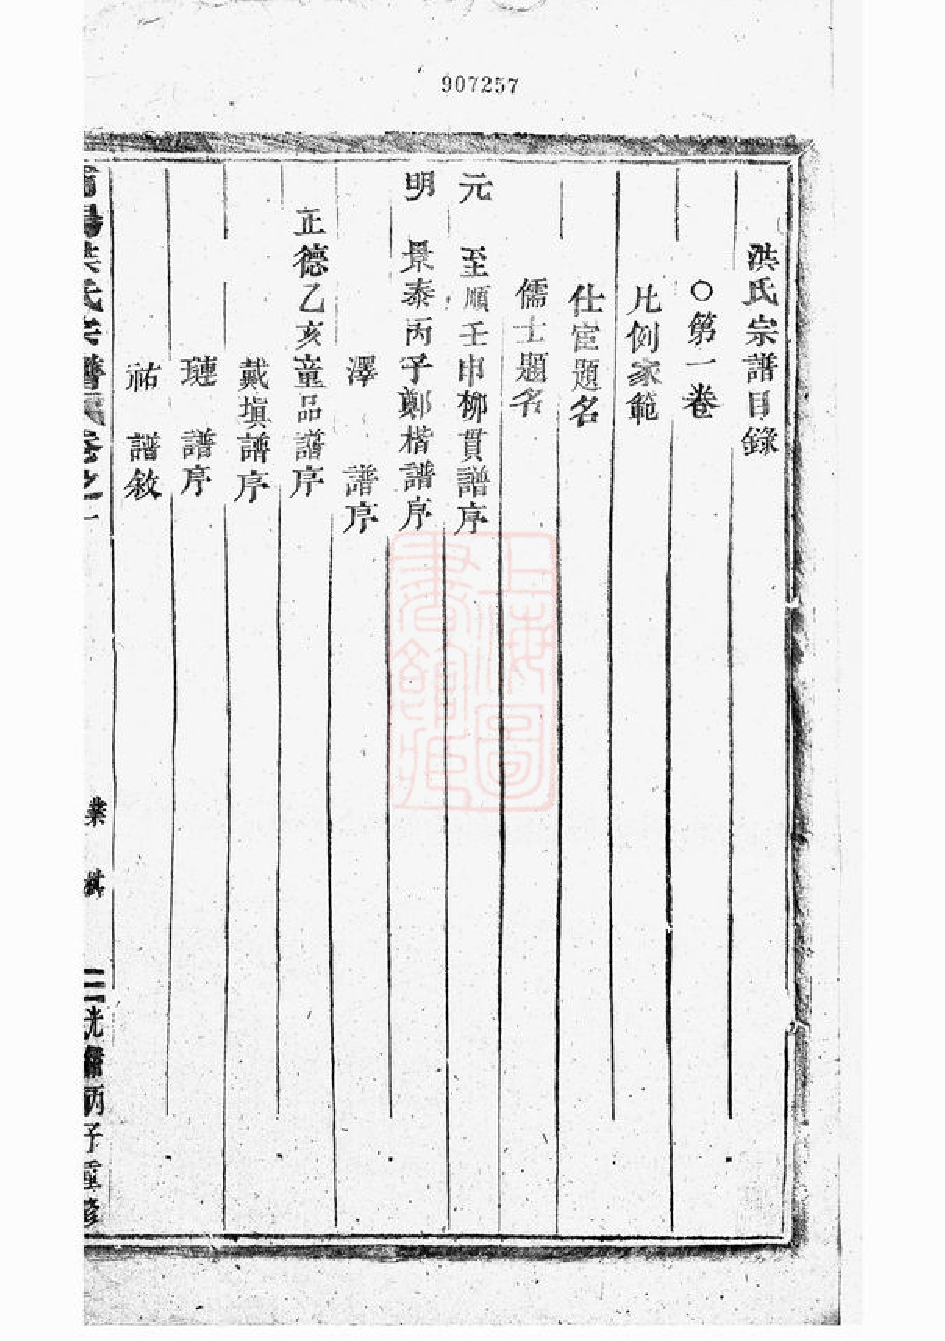 907257
洪氏宗譜目錄
○第一卷
凡例家範
仕宦題名
儒士題名
元 至順壬申柳貫譜序
明 景泰丙子鄭楷譜序
澤 譜序
正德乙亥童品譜序
戴塤譜序
璉 譜序
祐 譜敘
洪氏宗譜 卷之一
光緒丙子重修
上海圖書館藏